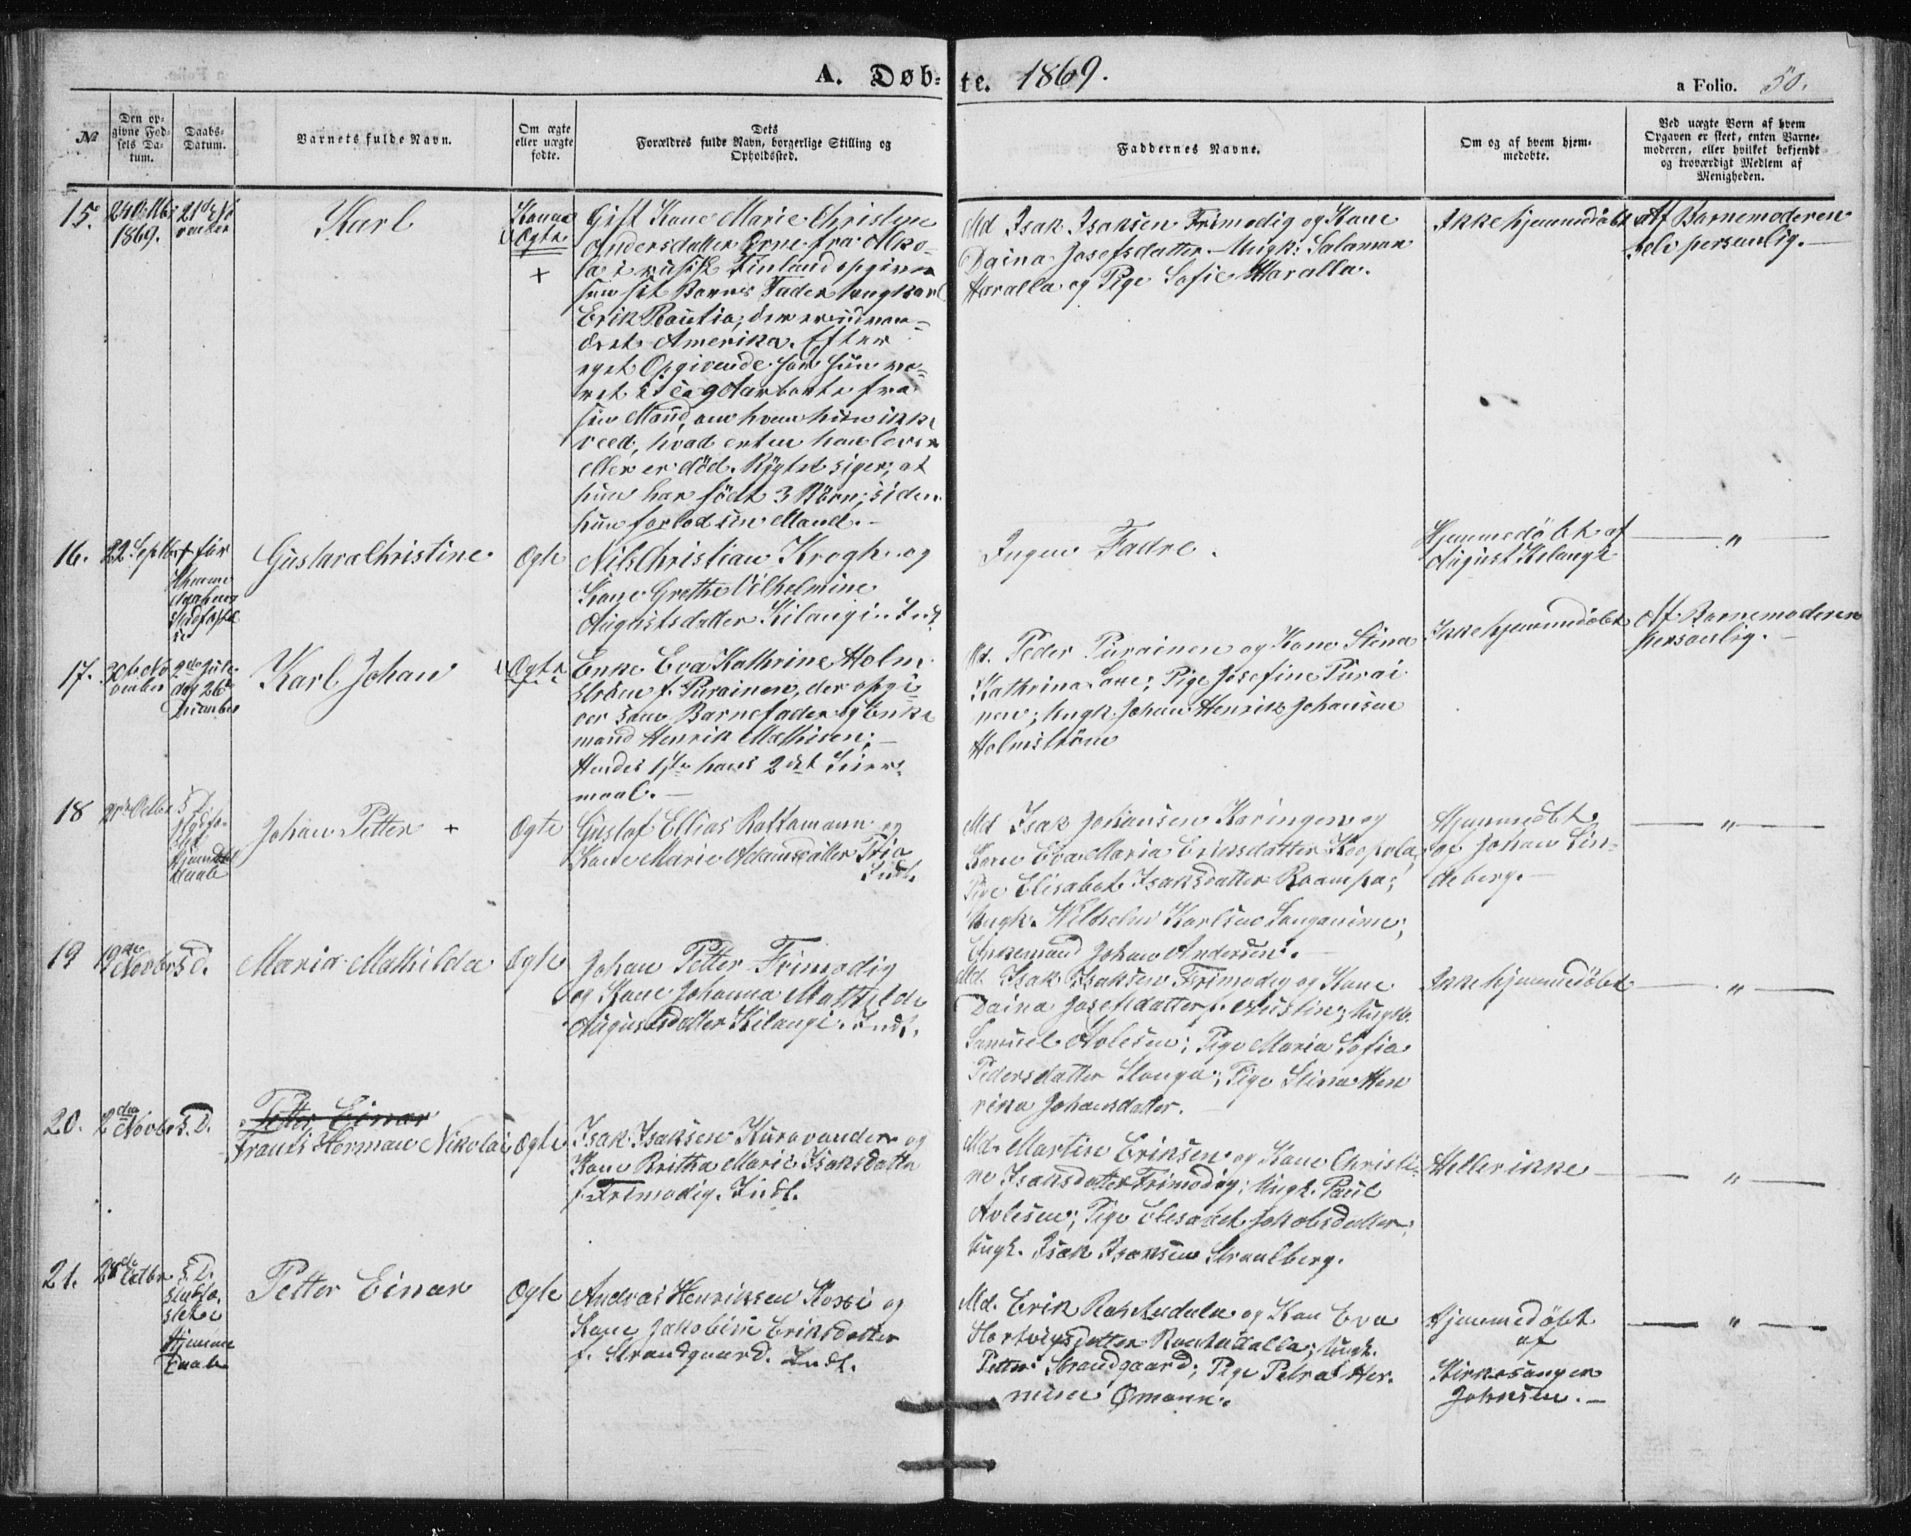 A. Døb=
te. 1869.
a Folio. 50.
№
Den op-
givne Fød-
sels Da-
tum.
Daabs-
Datum.
Barnets fulde Navn.
Om ægte
eller uægte
fødte.
Dets
Forældres fulde Navn, borgerlige Stilling og
Opholdssted.
Faddernes Navne.
Om og af hvem hjem-
medøbte.
Ved uægte Børn af hvem
Opgaven er skeet, enten Barne-
moderen, eller hvilket bekjendt
og troværdigt Medlem af
Menigheden.
15.
1869.
21de
vember
Karl
Uægte
+
Gift Kone Marie Christine
Andersdatter Erne fra
i russisk Finland opgiver
som sit Barns Fader Ungkarl
Erik Rautio, der er udvan-
dret Amerika. Efter
eget Opgivende har hun væ-
ret i ca 9 Aar borte fra
sin Mand, om hvem hun ikke
veed, hvad enten han lever
eller er død. Rygtet siger, at
hun har født 3 Børn, siden
hun forlod sin Mand.
Md Isak Isaksen Frimodig og Kone
Daina Josefsdatter. Ungk: Salamon
Haralla og Pige Sofie Haralla.
Ikke hjemmedøbt
Af Barnemoderen
selv personlig.
16.
22 Septbr
+ før
Gustava Christine
Ægte
Nils Christian Krogh og
Kone Grethe Vilhelmine
Augustsdatter Kilangi. Indt.
Ingen Fadre.
Hjemmedøbt af
August Kilangi
— " —
17.
30te No
vember
2den Jule
dag 26
December
Karl Johan
Uægte
Enke Eva Kathrine Holm
strøm f. Purainen, der opgi
ver som Barnefader og Enke
mand Henrik Mathisen;
Hendes 1ste hans 2det Leier-
maal.
Md. Peder Purainen og Kone Stina
Kathrina Lone; Pige Josefine Purai
nen; Ungk. Johan Henrik Johansen
Holmstrøm
Ikke hjemmedøbt
Af Barnemoderen
personlig.
18
21de Octbr
S. D.
Johan Petter +
Ægte
Gustaf Ellias Rattamann og
Kone Marie Adamsdatter
Indt.
Md Isak Johansen Karingen og
Kone Eva Maria Eriksdatter
Pige Elisabet Isaksdatter Raampa;
Ungk. Wilhelm Karlsen
Enkemand Johan Andersen.
Hjemmedøbt
af Johan Lin-
deberg.
— " —
19
19de
Novbr
S. D.
Maria Mathilda
Ægte
Johan Petter Frimodig
og Kone Johanna Mathilde
Augustsdatter Kilangi. Indt.
Md. Isak Isaksen Frimodig og Kone
Daina Josefsdatter f. Austin; Ungk.
Samuel Olesen; Pige Maria Sofia
Pedersdatter; Pige Stina Hen
rika Johansdatter.
Ikke hjemmedøbt
— " —
20.
2den
Novbr
S. D.
Petter Einar
Frants Herman Nikolai
Ægte
Isak Isaksen Kuravander og
Kone Britha Marie Isaksdatter
f. Frimodig. Indt.
Md. Martin Eriksen og Kone Christi-
ne Isaksdatter Frimodig; Ungk. Paul
Avlesen; Pige Elisabet Jakobsdatter;
Ungk. Isak Isaksen Straalberg.
Heller ikke
— " —
21.
28de
Octbr
S. D.
Hjemme
Daab
Petter Einar
Ægte
Andreas Henriksen Kossi og
Kone Jakobine Eriksdatter
f. Strandgaard. Indt.
Md. Erik Rautudala og Kone Eva
Hartvigsdatter; Ungk.
Petter Strandgaard; Pige Petra Her-
mine Ørmann.
Hjemmedøbt
af
Kirkesanger
Johnsen.
— " —